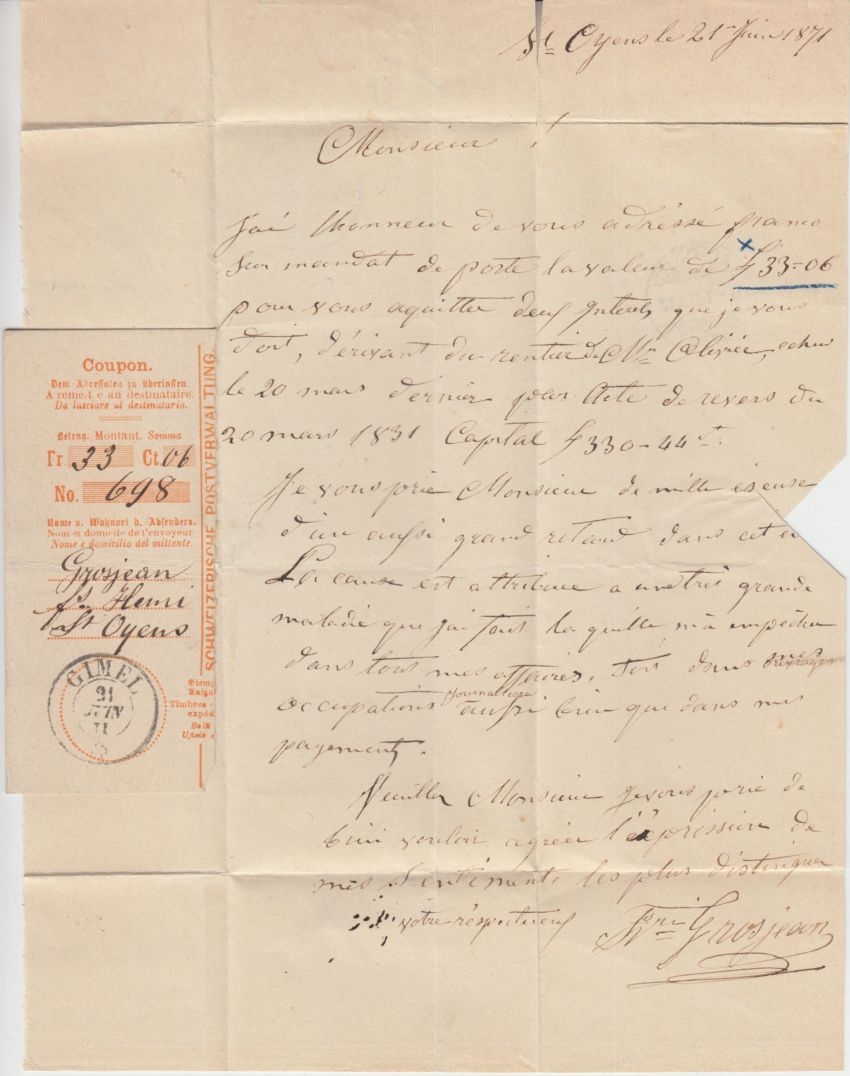 St Oyens le 21 Juin 1871
Monsieur !
J'ai l'honneur de vous adréssé franco
sur mandat de poste la valeur de f 33-06
pour vous aquitter deux Interets que je vous
doit, dérivant du rentier de Mr Olivier, echus
le 20 mars dernier par Acte de revers du
20 mars 1831 Capital f 330-44 ct.
Je vous prie Monsieur de mille escuse
d'un aussi grand retard dans cet en
La cause est attribuée a une très grande
maladie que j'ai fait la quelle m'a empêcher
dans tout mes affaires, soit dans
occupations journalliere aussi bien que dans mes
payements.
Veuillez Monsieur je vous prie de
bien vouloir agréer l'expression de
mes sentiments les plus distinguer
votre réspectueux Hri Grosjean
Coupon.
Dem Adressaten zu überlassen
A remettre au destinataire.
Da lasciare al destinatario.
Betrag. Montant. Somma
Fr. 33 Ct. 06
No. 698
Name u. Wohnort d. Absenders.
Nom et domicile de l'envoyeur
Nome e domicilio del mittente.
Grosjean
fs Henri
St Oyens
GIMEL
21
JUIN
71
SCHWEIZERISCHE POSTVERWALTUNG
Stemp
Timbres
expéd